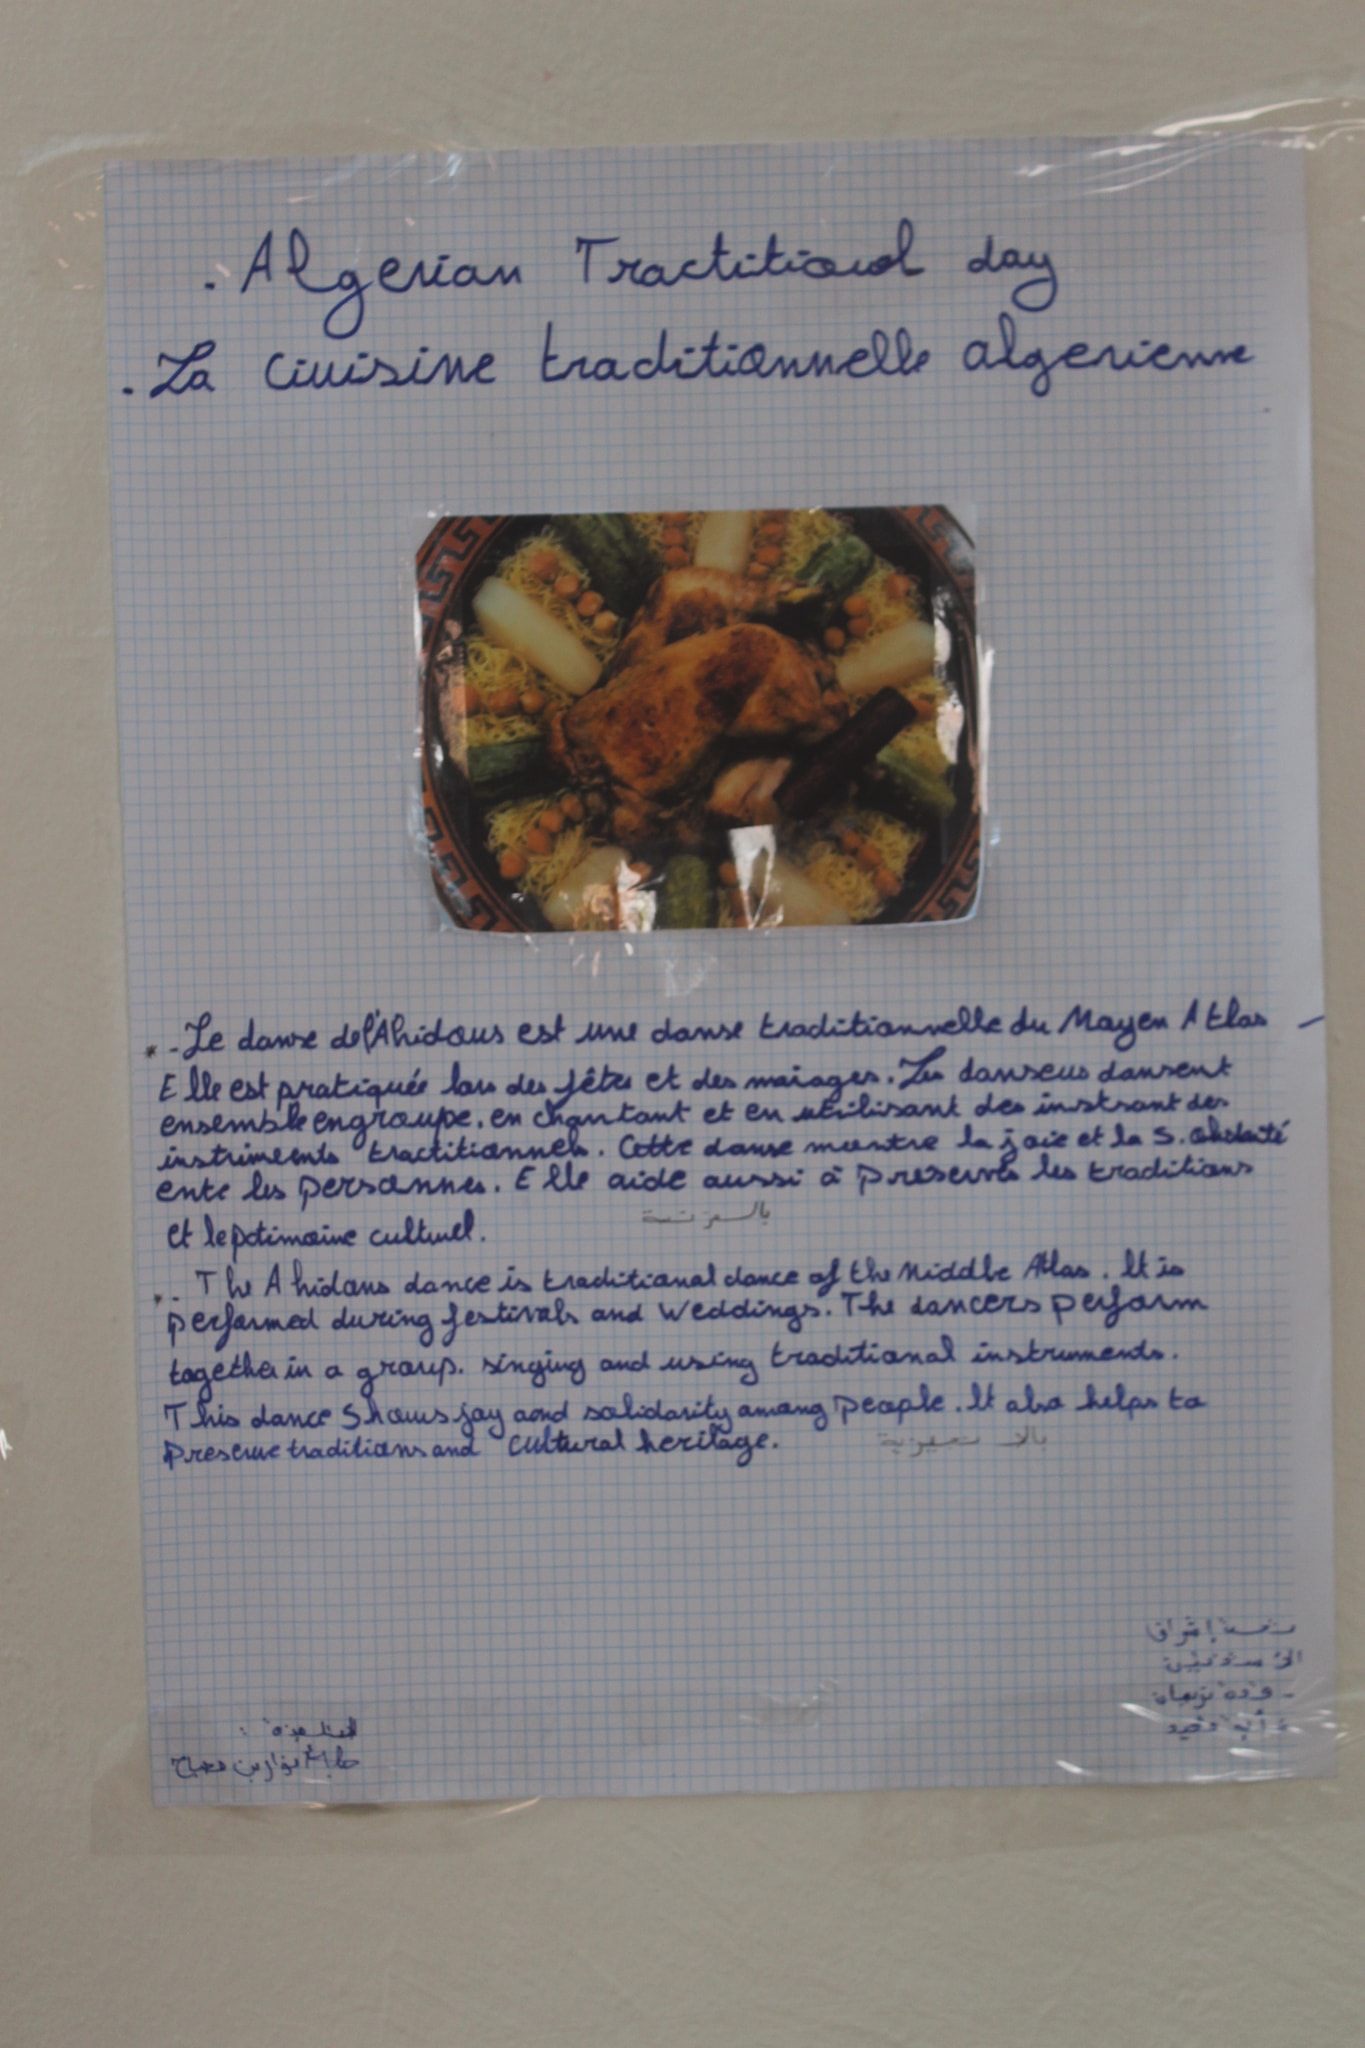 . Algerian Tractitional day
. La Ciuisine traditionnelle algerienne
* - Le danse de l'Ahidous est une danse traditionnelle du Mayen Atlas
Elle est pratiquée lors des fêtes et des mariages. Les danseus dansent
ensemble en groupe. en chantant et en utilisant des instrsant des
instriments tractitionnels. Cette danse montre la joie et la
ente les personnes. Elle aide aussi à preserve les traditions
et le potimoine culturel.
* . The Ahidous dance is traditional dance of the Middle Atlas. It is
performed during festivals and weddings. The dancers perform
together in a group. singing and using traditional instruments.
This dance shows joy aond solidarity among people. It also helps to
preserve traditions and cultural heritage.